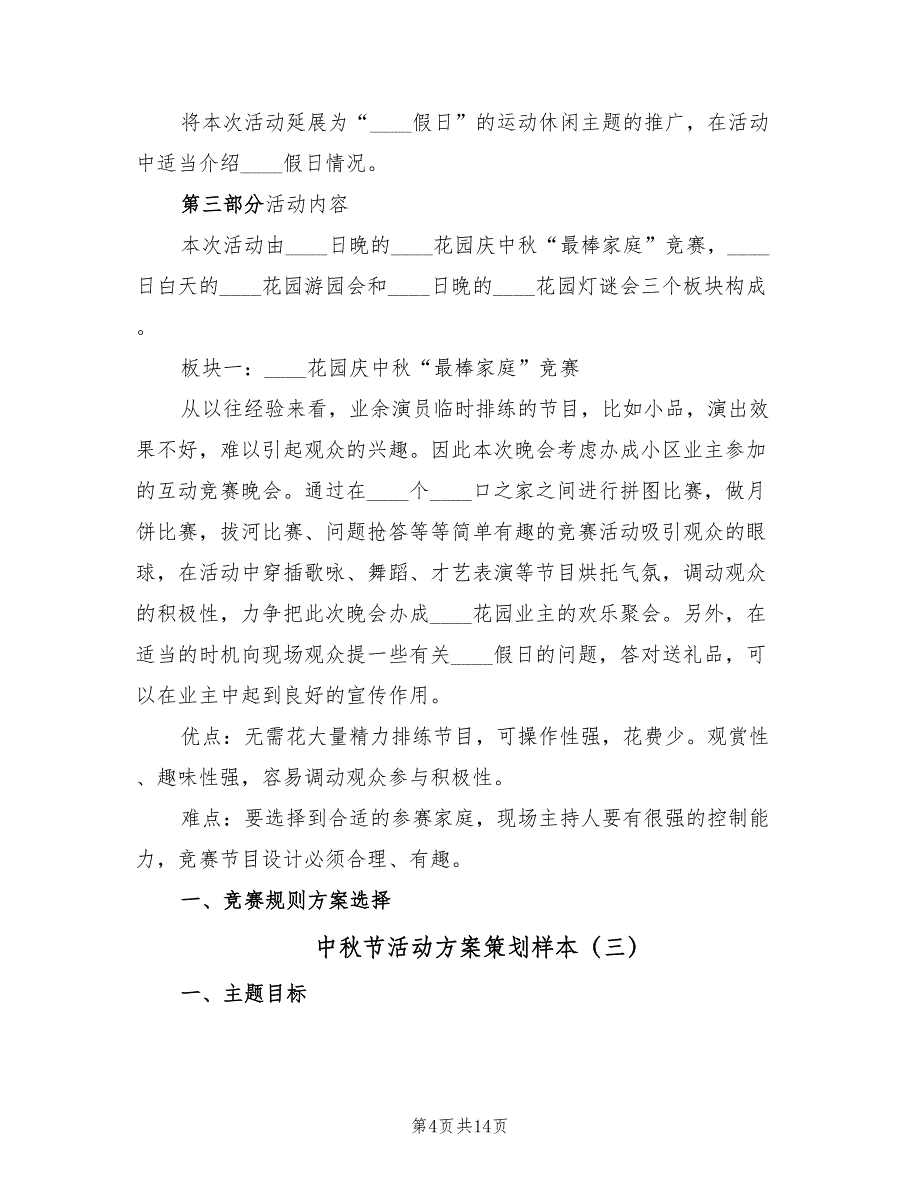 将本次活动延展为“____假日”的运动休闲主题的推广，在活动
中适当介绍____假日情况。
第三部分活动内容
本次活动由____日晚的____花园庆中秋“最棒家庭”竞赛，____
日白天的____花园游园会和____日晚的____花园灯谜会三个板块构成
。
板块一：____花园庆中秋“最棒家庭”竞赛
从以往经验来看，业余演员临时排练的节目，比如小品，演出效
果不好，难以引起观众的兴趣。因此本次晚会考虑办成小区业主参加
的互动竞赛晚会。通过在____个____口之家之间进行拼图比赛，做月
饼比赛，拔河比赛、问题抢答等等简单有趣的竞赛活动吸引观众的眼
球，在活动中穿插歌咏、舞蹈、才艺表演等节目烘托气氛，调动观众
的积极性，力争把此次晚会办成____花园业主的欢乐聚会。另外，在
适当的时机向现场观众提一些有关____假日的问题，答对送礼品，可
以在业主中起到良好的宣传作用。
优点：无需花大量精力排练节目，可操作性强，花费少。观赏性
、趣味性强，容易调动观众参与积极性。
难点：要选择到合适的参赛家庭，现场主持人要有很强的控制能
力，竞赛节目设计必须合理、有趣。
一、竞赛规则方案选择
中秋节活动方案策划样本（三）
一、主题目标
第4页共14页